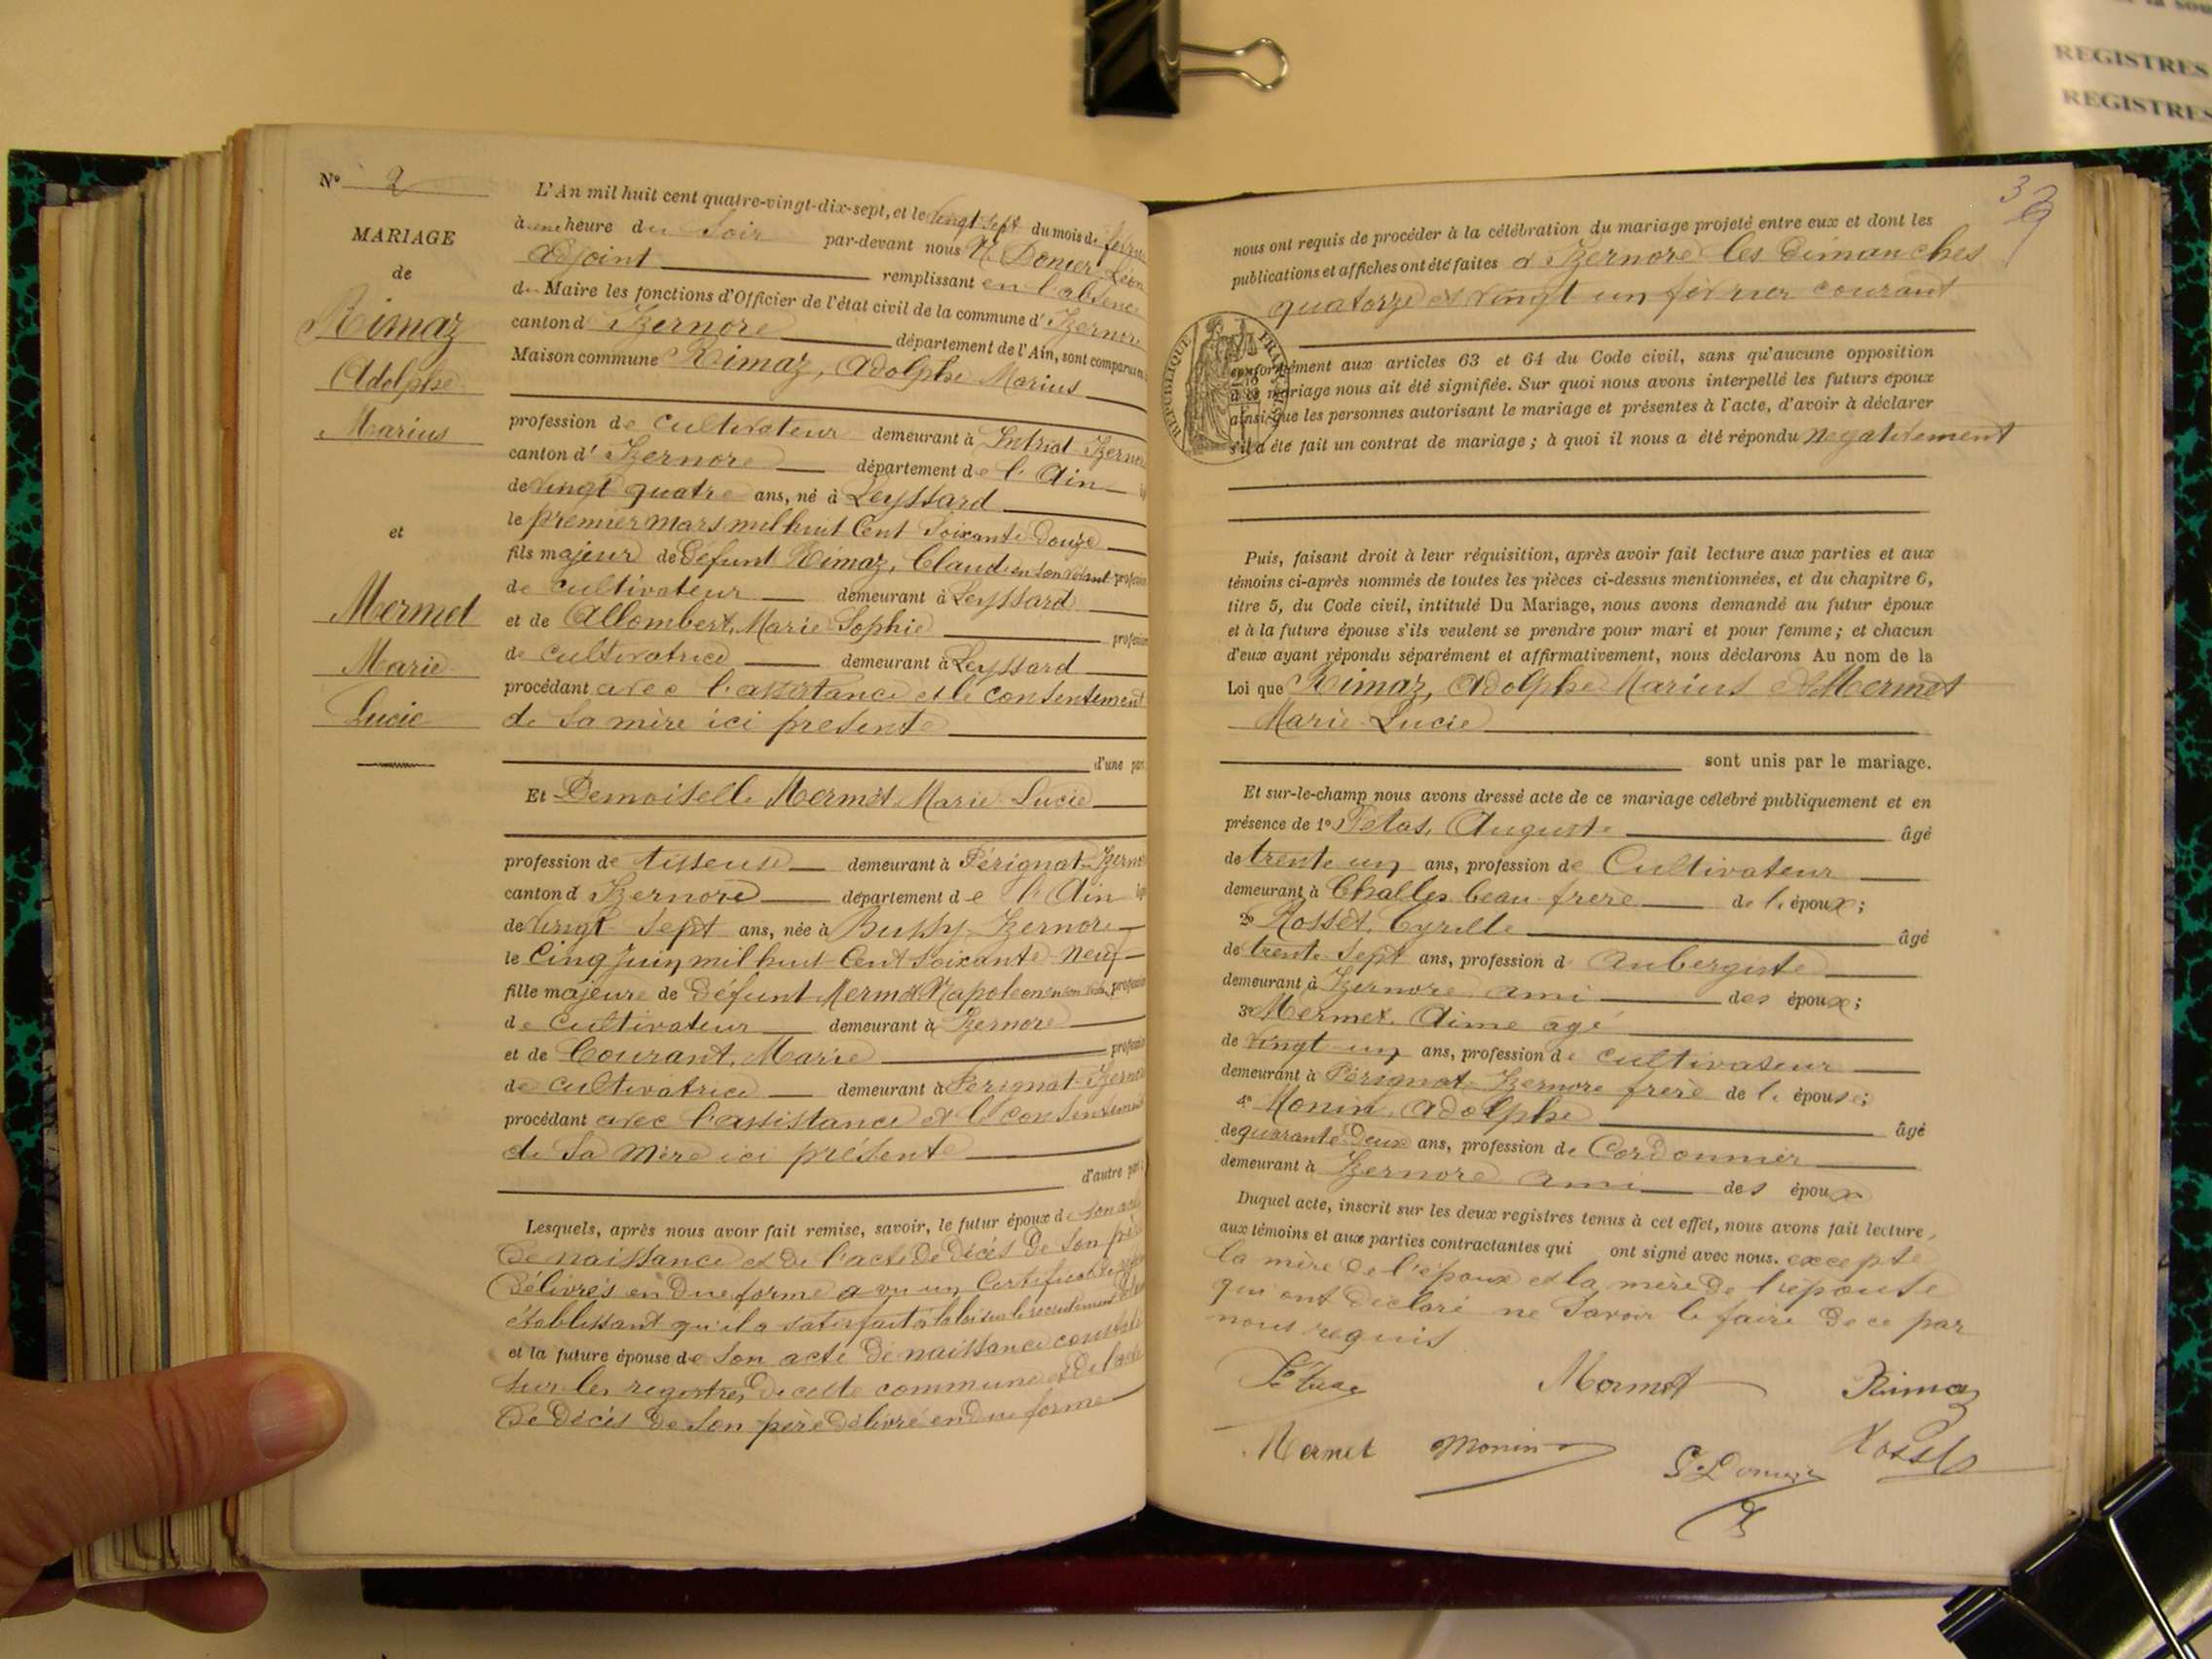 N° 2
MARIAGE
de
Rimaz
Adolphe
Marius
et
Mermet
Marie
Lucie
L'An mil huit cent quatre-vingt-dix-sept, et le vingt sept du mois de
à une heure du soir par-devant nous Donier Léon
adjoint remplissant en l'absence
du Maire les fonctions d'Officier de l'état civil de la commune d' Izernore
canton d' Izernore département de l'Ain, sont comparus en
Maison commune Rimaz, Adolphe Marius
profession de cultivateur demeurant à Intriat Izernore
canton d' Izernore département de l'Ain
de vingt quatre ans, né à Leyssard
le premier mars mil huit cent soixante douze
fils majeur de défunt Rimaz, Claude en son vivant profession
de cultivateur demeurant à Leyssard
et de Allombert, Marie Sophie profession
de cultivatrice demeurant à Leyssard
procédant avec l'assistance et le consentement
de sa mère ici presente
d'une part
Et Demoiselle Mermet Marie Lucie
profession de tisseuse demeurant à Pérignat-Izernore
canton d Izernore département de l'Ain
de vingt sept ans, née à Bussy-Izernore
le cinq juin mil huit cent soixante neuf
fille majeure de défunt Mermet Napoleon en son vivant profession
de cultivateur demeurant à Izernore
et de Courant, Marie profession
de cultivatrice demeurant à Perignat-Izernore
procédant avec l'assistance et le consentement
de sa mère ici présente
d'autre part;
Lesquels, après nous avoir fait remise, savoir, le futur époux de son acte
de naissance et de l'acte de décès de son père
délivrés en due forme a vu un certificat
établissant qu'il a satisfait à la loi sur le recrutement
et la future épouse de son acte de naissance
sur les registres de cette commune et de l'acte
de décès de son père délivré en due forme
39
nous ont requis de procéder à la célébration du mariage projeté entre eux et dont les
publications et affiches ont été faites à Izernore les dimanches
quatorze et vingt un février courant
RÉPUBLIQUE FRANÇAISE
conformément aux articles 63 et 64 du Code civil, sans qu'aucune opposition
à ce mariage nous ait été signifiée. Sur quoi nous avons interpellé les futurs époux
ainsi que les personnes autorisant le mariage et présentes à l'acte, d'avoir à déclarer
s'il a été fait un contrat de mariage; à quoi il nous a été répondu negativement
Puis, faisant droit à leur réquisition, après avoir fait lecture aux parties et aux
témoins ci-après nommés de toutes les pièces ci-dessus mentionnées, et du chapitre 6,
titre 5, du Code civil, intitulé Du Mariage, nous avons demandé au futur époux
et à la future épouse s'ils veulent se prendre pour mari et pour femme; et chacun
d'eux ayant répondu séparément et affirmativement, nous déclarons Au nom de la
Loi que Rimaz, Adolphe Marius et Mermet
Marie-Lucie
sont unis par le mariage.
Et sur-le-champ nous avons dressé acte de ce mariage célébré publiquement et en
présence de 1° Auguste âgé
de trente un ans, profession de Cultivateur
demeurant à Challes beau-frère de l'époux;
2° Rosset, Cyrille âgé
de trente sept ans, profession d aubergiste
demeurant à Izernore ami des époux;
3° Mermet. Aime agé
de vingt un ans, profession de cultivateur
demeurant à Pérignat-Izernore frère de l'épouse;
4° Monin, Adolphe âgé
de quarante deux ans, profession de Cordonnier
demeurant à Izernore ami des époux
Duquel acte, inscrit sur les deux registres tenus à cet effet, nous avons fait lecture,
aux témoins et aux parties contractantes qui ont signé avec nous. excepté
la mère de l'époux et la mère de l'épouse
qui ont déclaré ne savoir le faire de ce par
nous requis
Mermet Rimaz
Mermet Monin Rosset
REGISTRES
REGISTRES